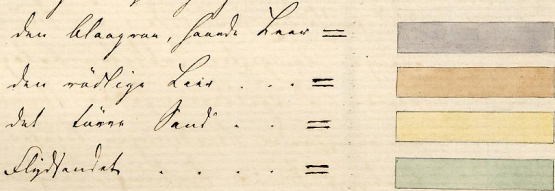 den blaagraa, haarde Leer =
den rödlige Leer . . . =
det törre Sand . . =
Flydsandet . . . . =